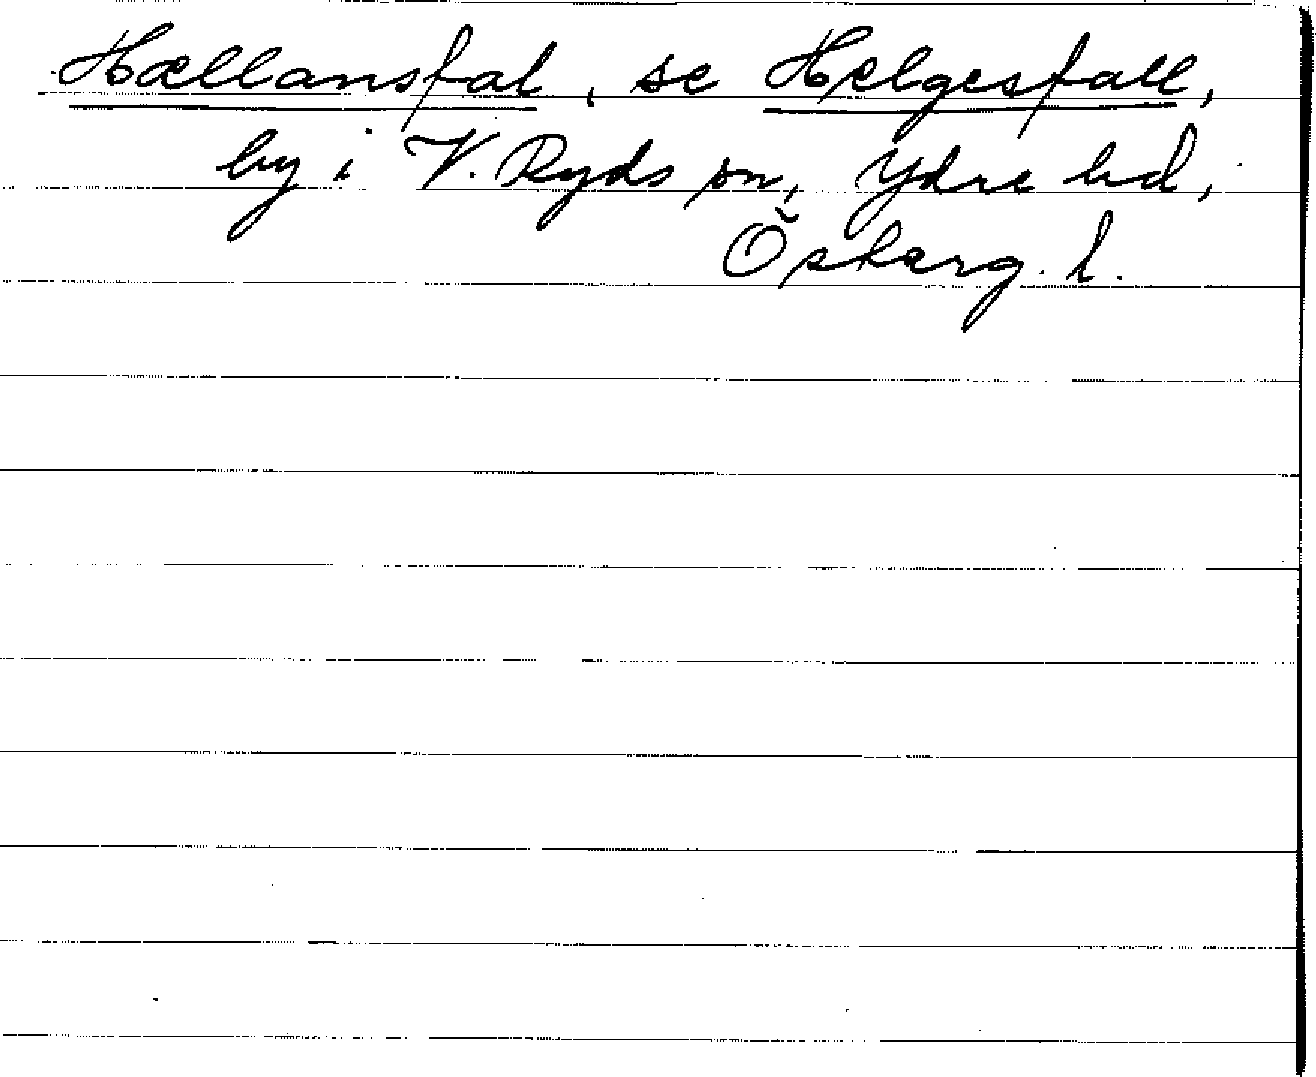 Hællansfal, se Helgesfall,
by i V. Ryds sn, Ydre hd,
Östserg. l.